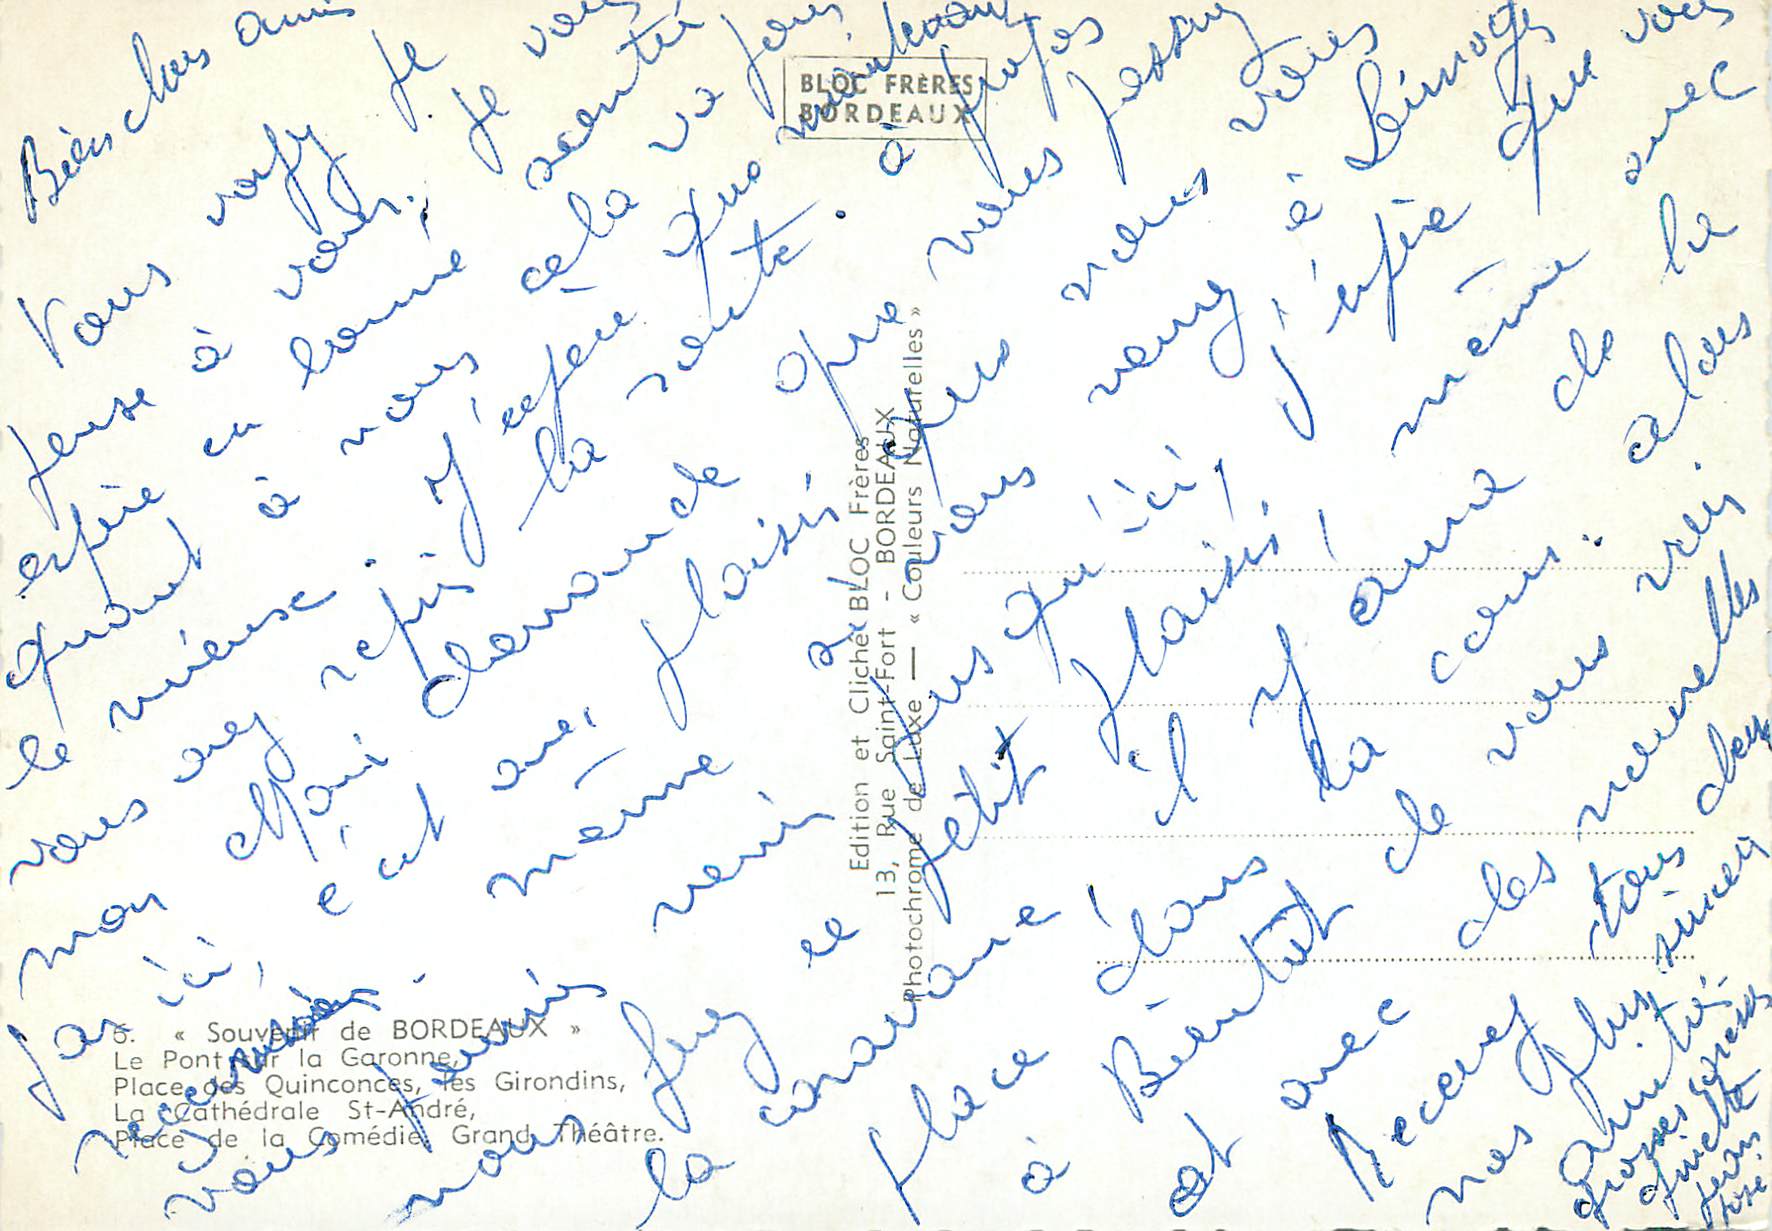 Bien chers amis
Vous voyez je vous
pense à vous. je
espère en bonne santé
quant à nous cela va pour
le mieux. J'espère que maintenant
vous avez repris la route. à propos
mon mari demande que vous passiez
par ici, c'est avec plaisir que nous vous
recevrons même si vous venez à Limoges
vous venir plus qu'ici, j'espère que vous
nous ferez ce petit plaisir, même avec
la caravane il y aura de la
place dans la cour. alors
à Bientôt de vous voir
et avec des nouvelles
Recevez tous deux
nos plus sincères
amitiés
grosses caresses
BLOC FRÈRES
BORDEAUX
Edition et Cliché BLOC Frères
13, Rue Saint-Fort - BORDEAUX
Photochrome de Luxe — « Couleurs Naturelles »
6. « Souvenir de BORDEAUX »
Le Pont sur la Garonne,
Place des Quinconces, les Girondins,
La Cathédrale St-André,
Place de la Comédie, Grand Théâtre.